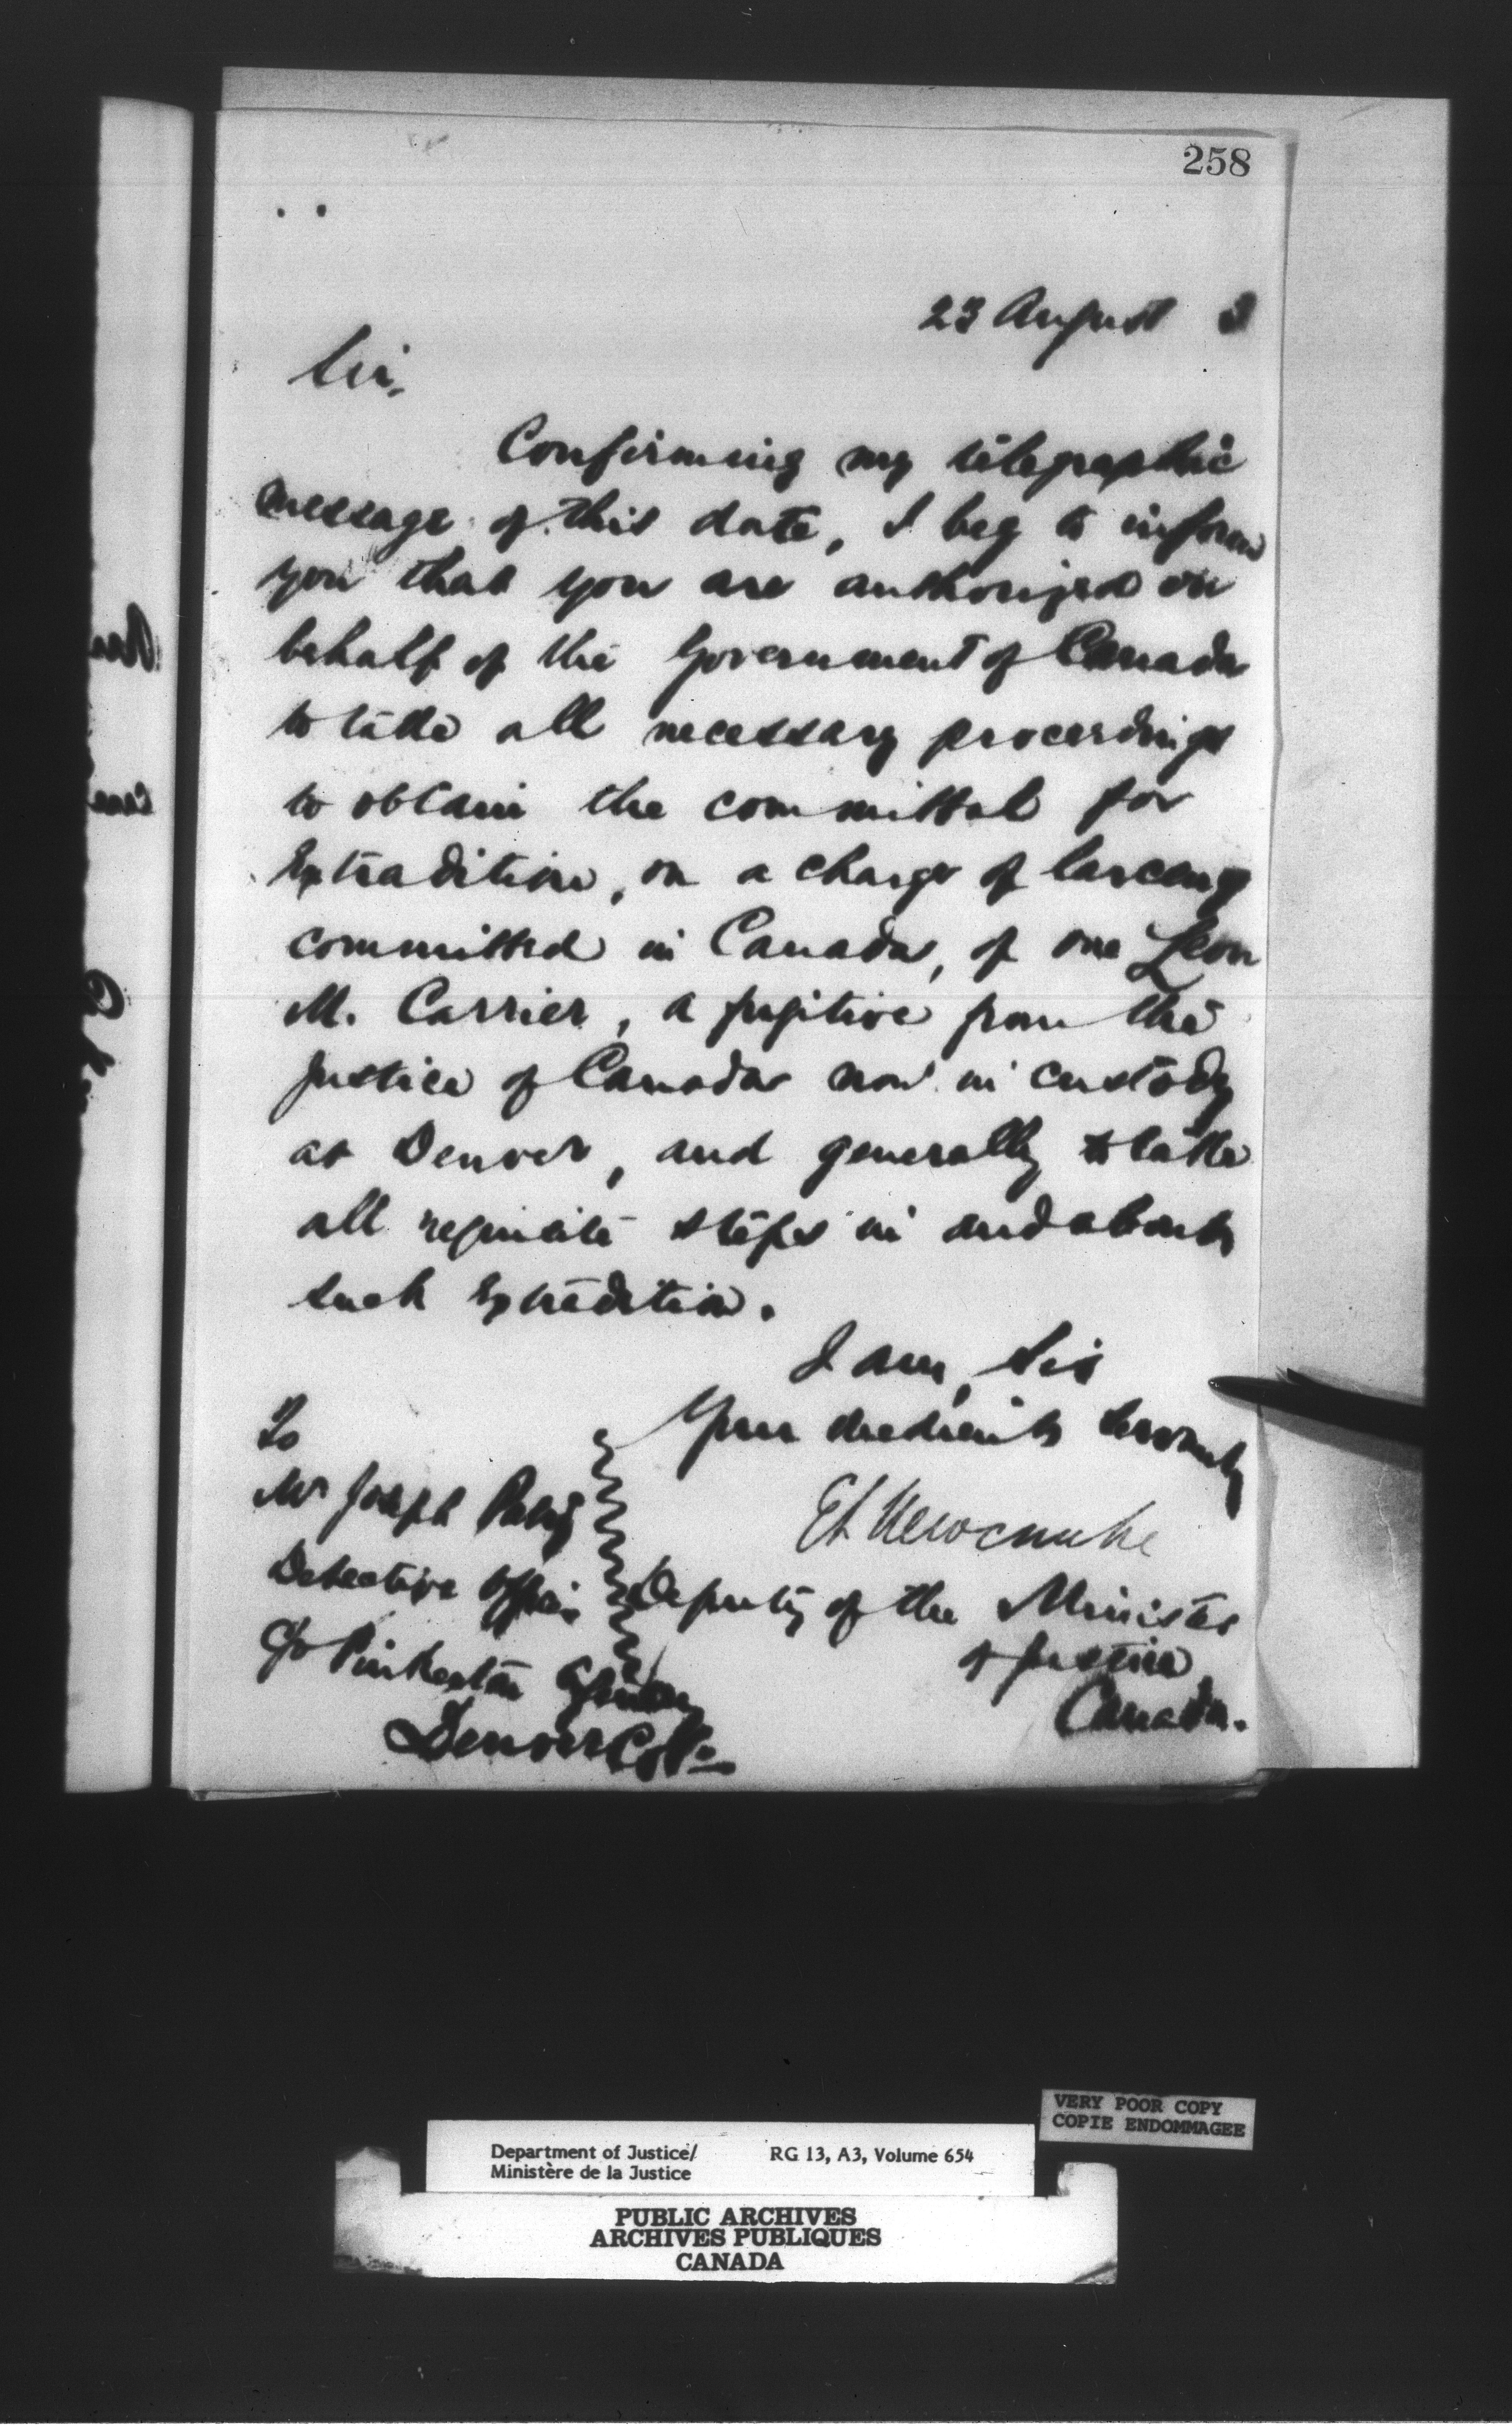 258
23 August 3
Sir,
Confirming my telegraphic
message of this date, I beg to inform
you that you are authorized on
behalf of the Government of Canada
to take all necessary proceedings
to obtain the committal for
Extradition, on a charge of larceny
committed in Canada, of one Leon
M. Carrier, a fugitive from the
justice of Canada now in custody
at Denver, and generally to take
all requisite steps in and about
such Extradition.
I am, Sir
Your obedient Servant
E L Newcombe
Deputy of the Minister
of Justice
Canada.
To
Mr Joseph
Detective Office
c/o Pinkerton Agency
Denver Col.
VERY POOR COPY
COPIE ENDOMMAGEE
Department of Justice/ RG 13, A3, Volume 654
Ministère de la Justice
PUBLIC ARCHIVES
ARCHIVES PUBLIQUES
CANADA